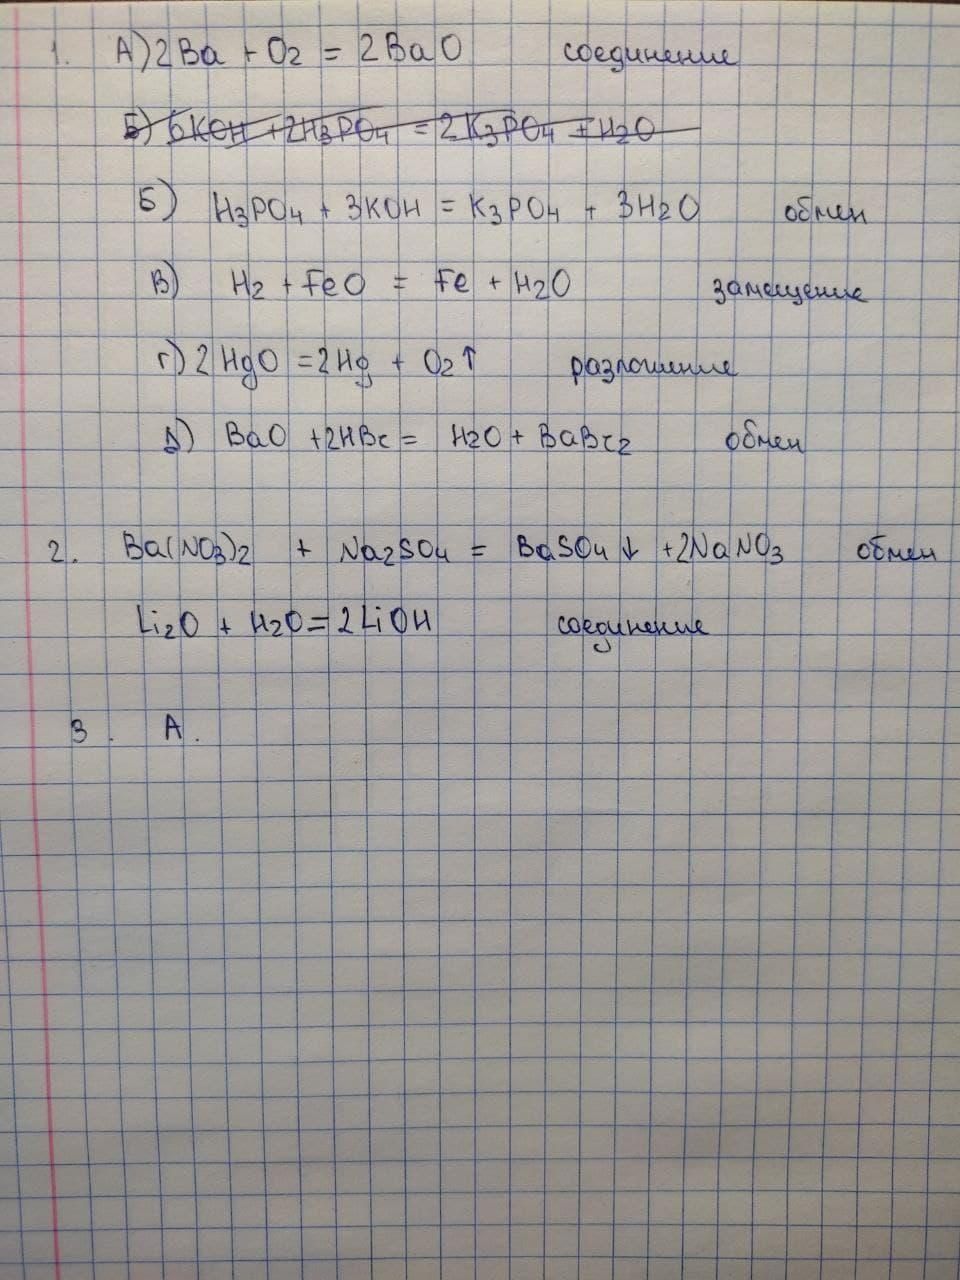 1. А) 2Ba + O2 = 2BaO соединение
Б) 6KOH + 2H3PO4 = 2K3PO4 + H2O
Б) H3PO4 + 3KOH = K3PO4 + 3H2O обмен
В) H2 + FeO = Fe + H2O замещение
г) 2HgO = 2Hg + O2↑ разложение
Д) BaO + 2HBr = H2O + BaBr2 обмен
2. Ba(NO3)2 + Na2SO4 = BaSO4↓ + 2NaNO3 обмен
Li2O + H2O = 2LiOH соединение
3. А.